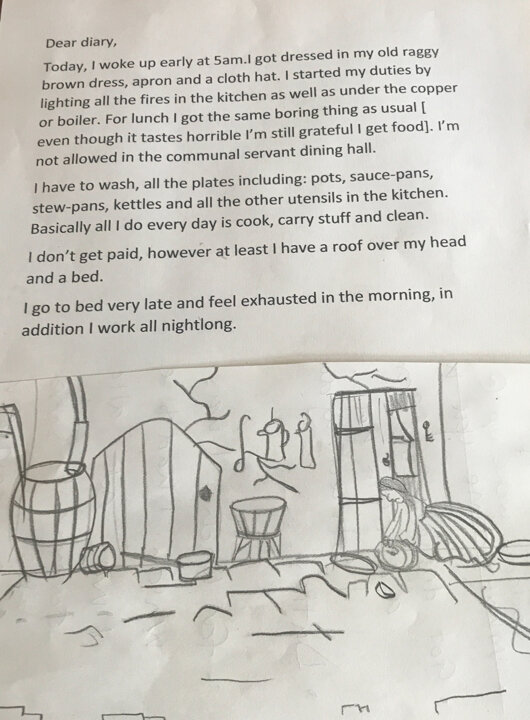 Dear diary,
Today, I woke up early at 5am.I got dressed in my old raggy
brown dress, apron and a cloth hat. I started my duties by
lighting all the fires in the kitchen as well as under the copper
or boiler. For lunch I got the same boring thing as usual [
even though it tastes horrible I'm still grateful I get food]. I'm
not allowed in the communal servant dining hall.
I have to wash, all the plates including: pots, sauce-pans,
stew-pans, kettles and all the other utensils in the kitchen.
Basically all I do every day is cook, carry stuff and clean.
I don't get paid, however at least I have a roof over my head
and a bed.
I go to bed very late and feel exhausted in the morning, in
addition I work all nightlong.